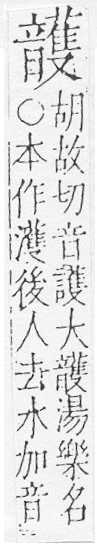 頀
胡故切音護大頀湯樂名
○本作濩後人去水加音